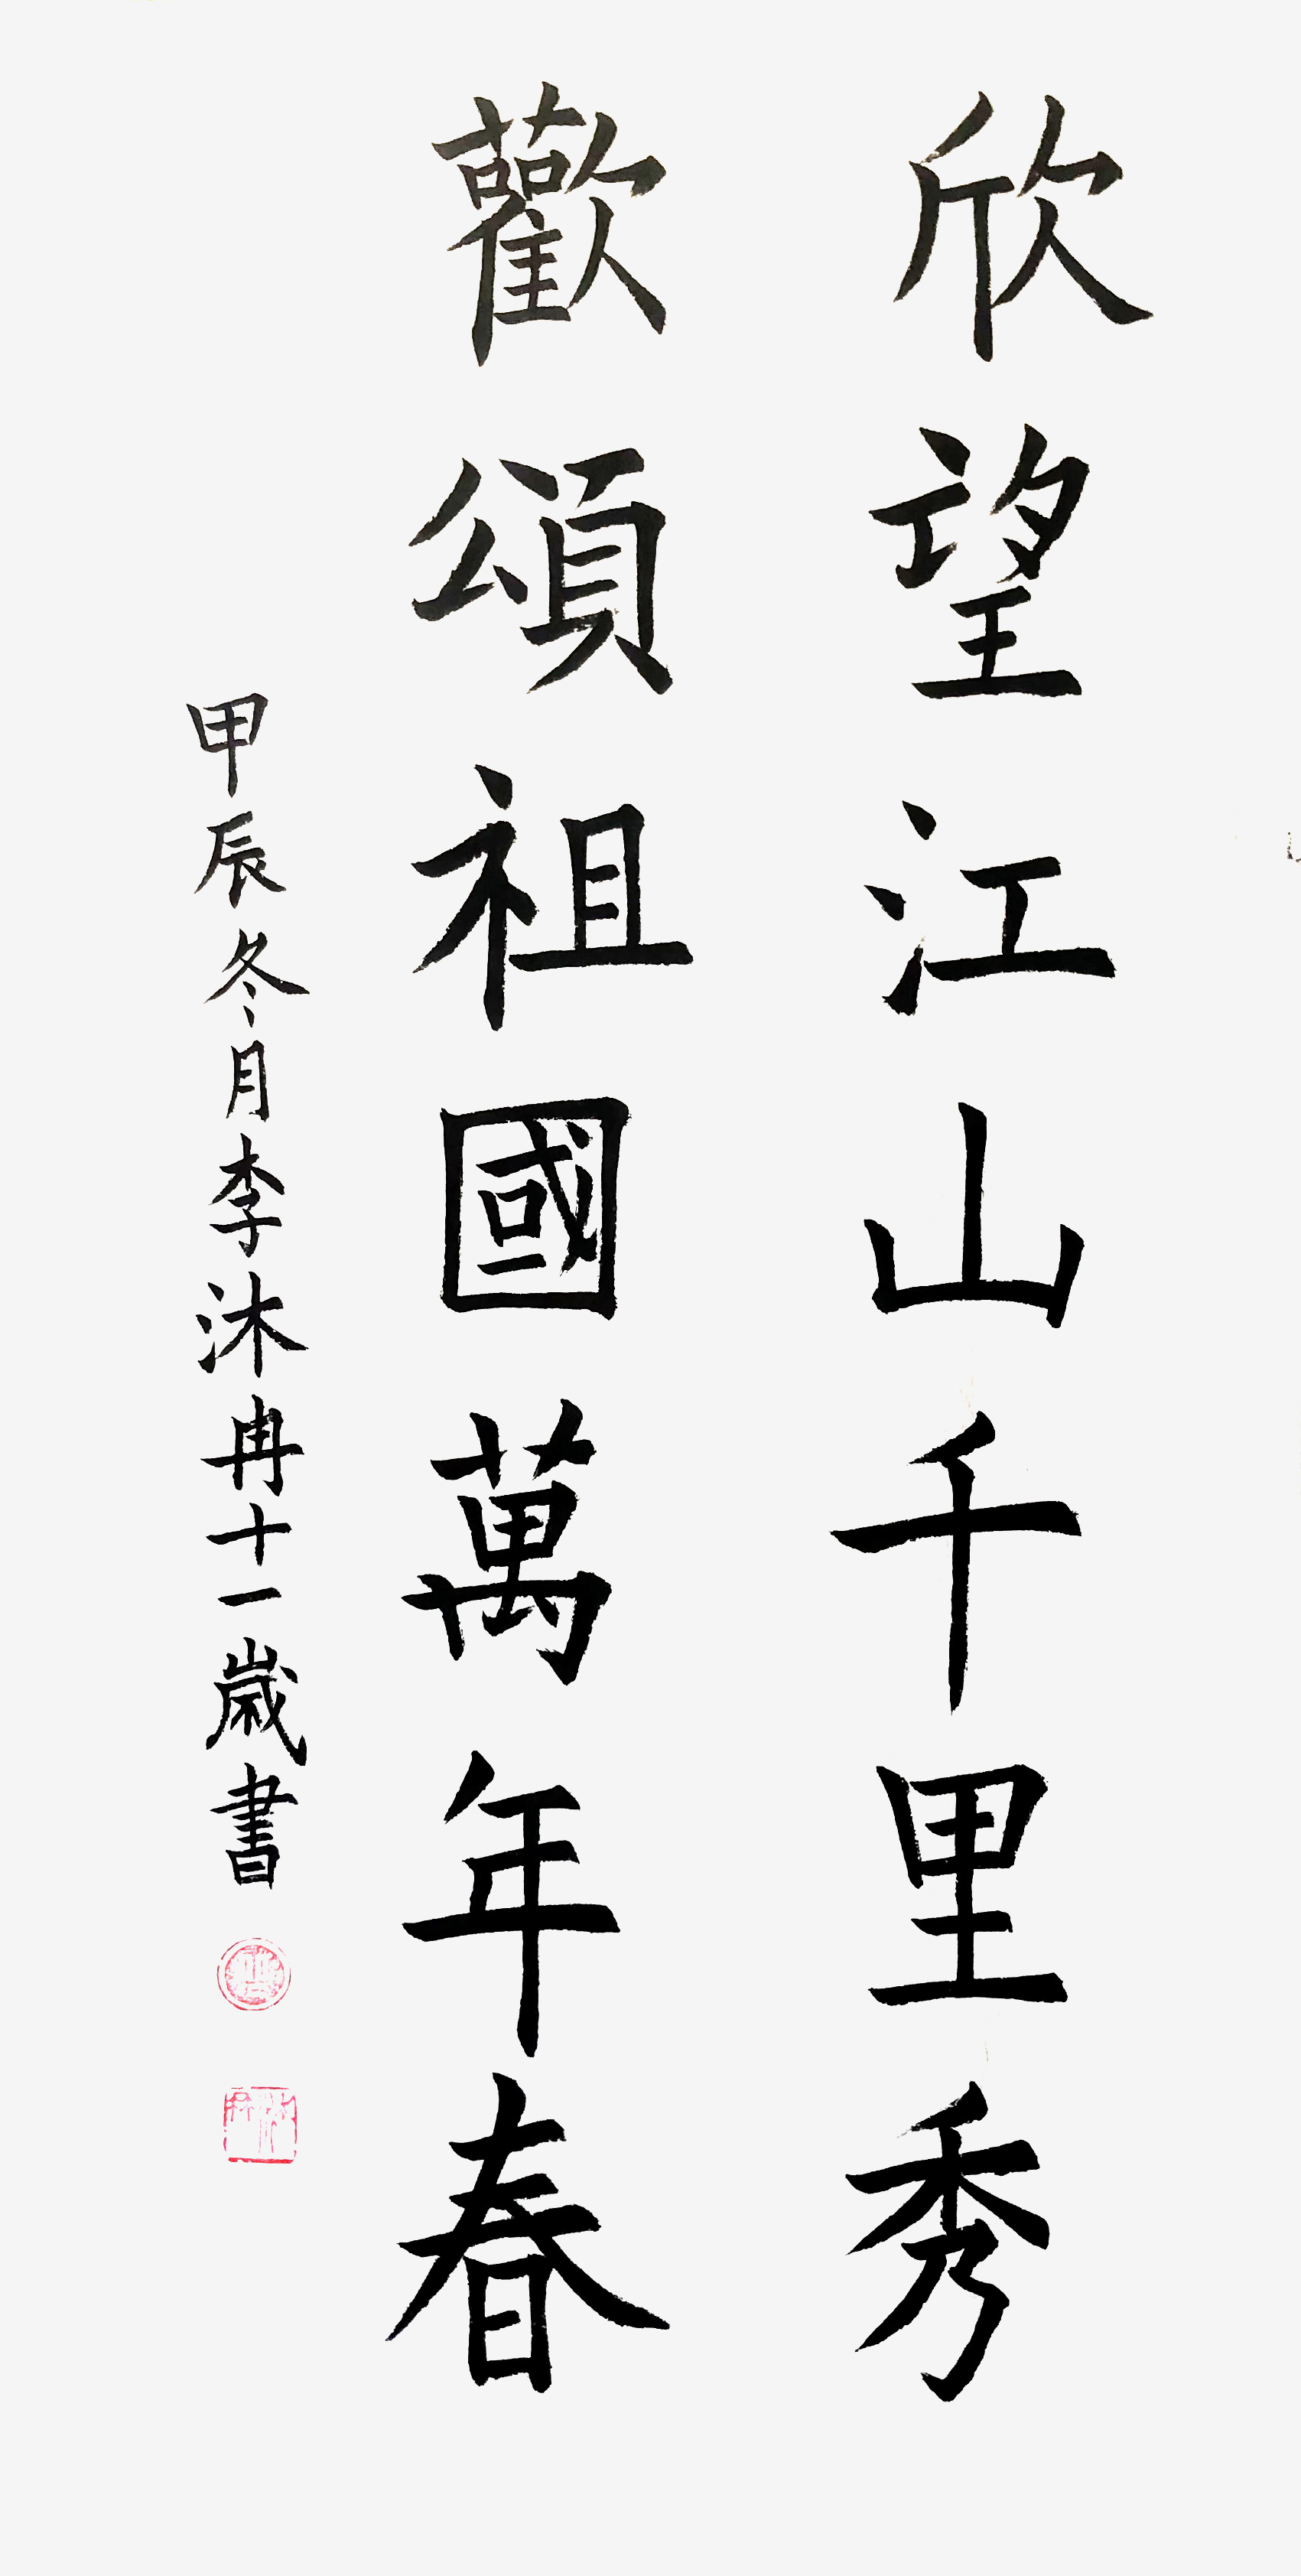 欣望江山千里秀
歡頌祖國萬年春
甲辰冬月李沐冉十一歲書